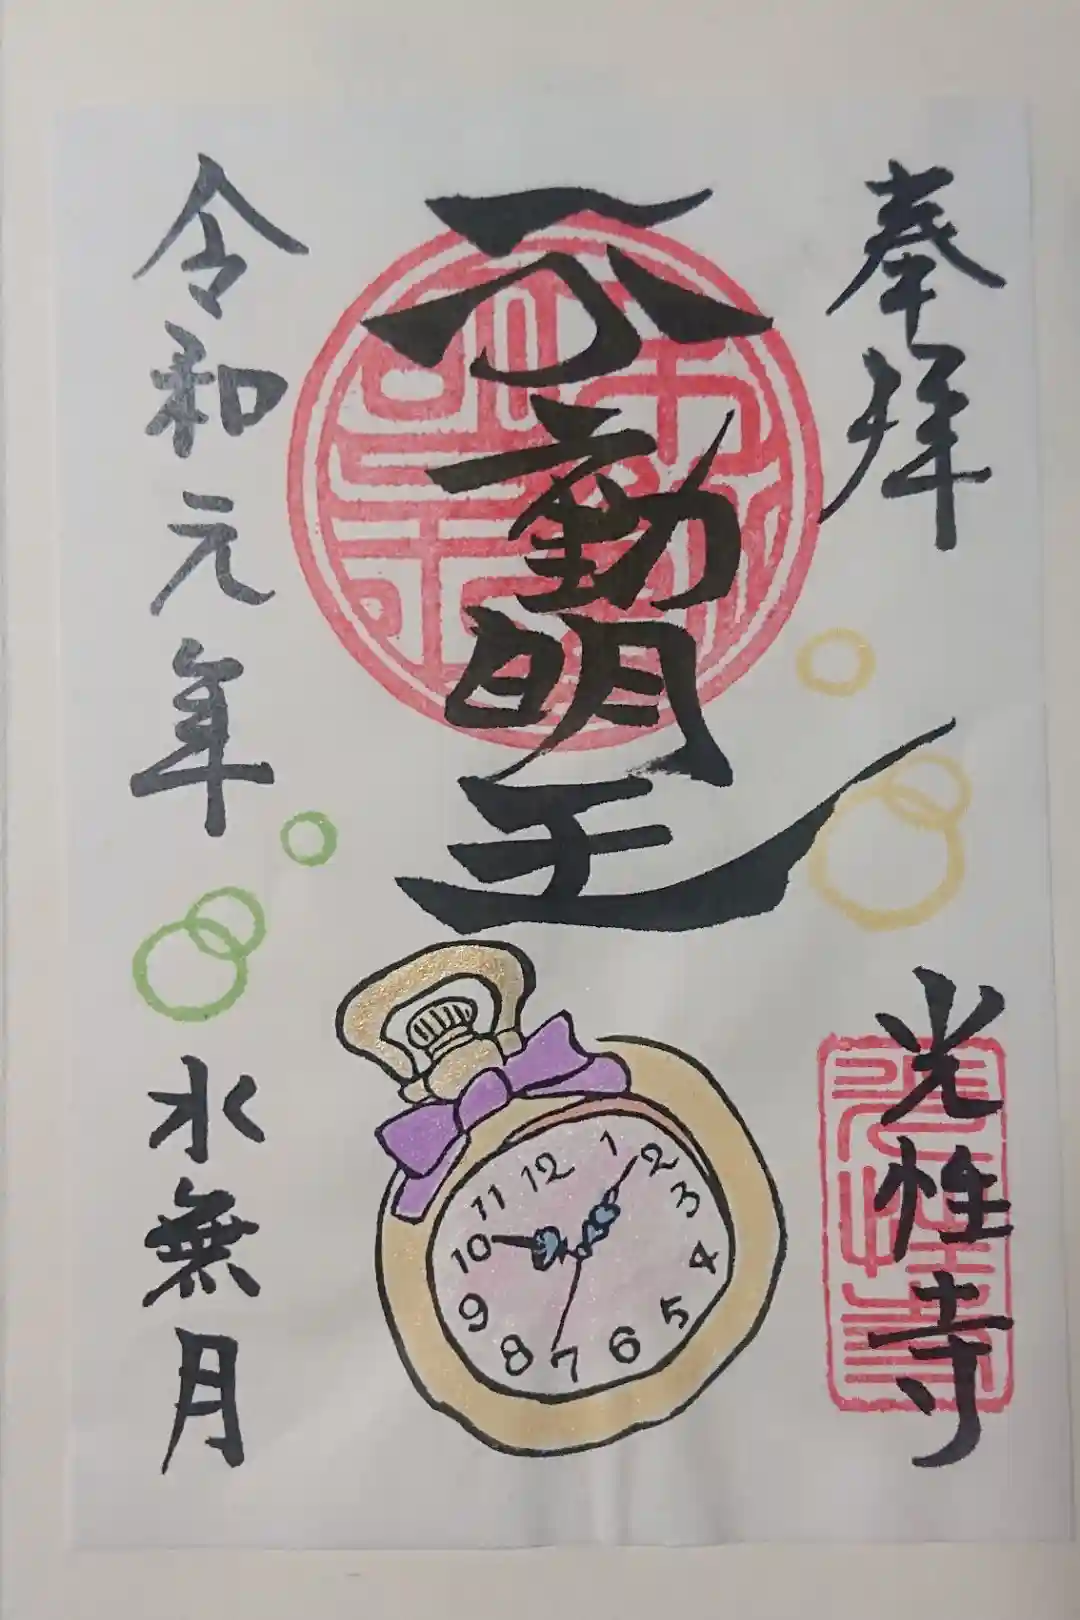 奉拝
不動明王
光性寺
令和元年 水無月
12
1
2
3
4
5
6
7
8
9
10
11